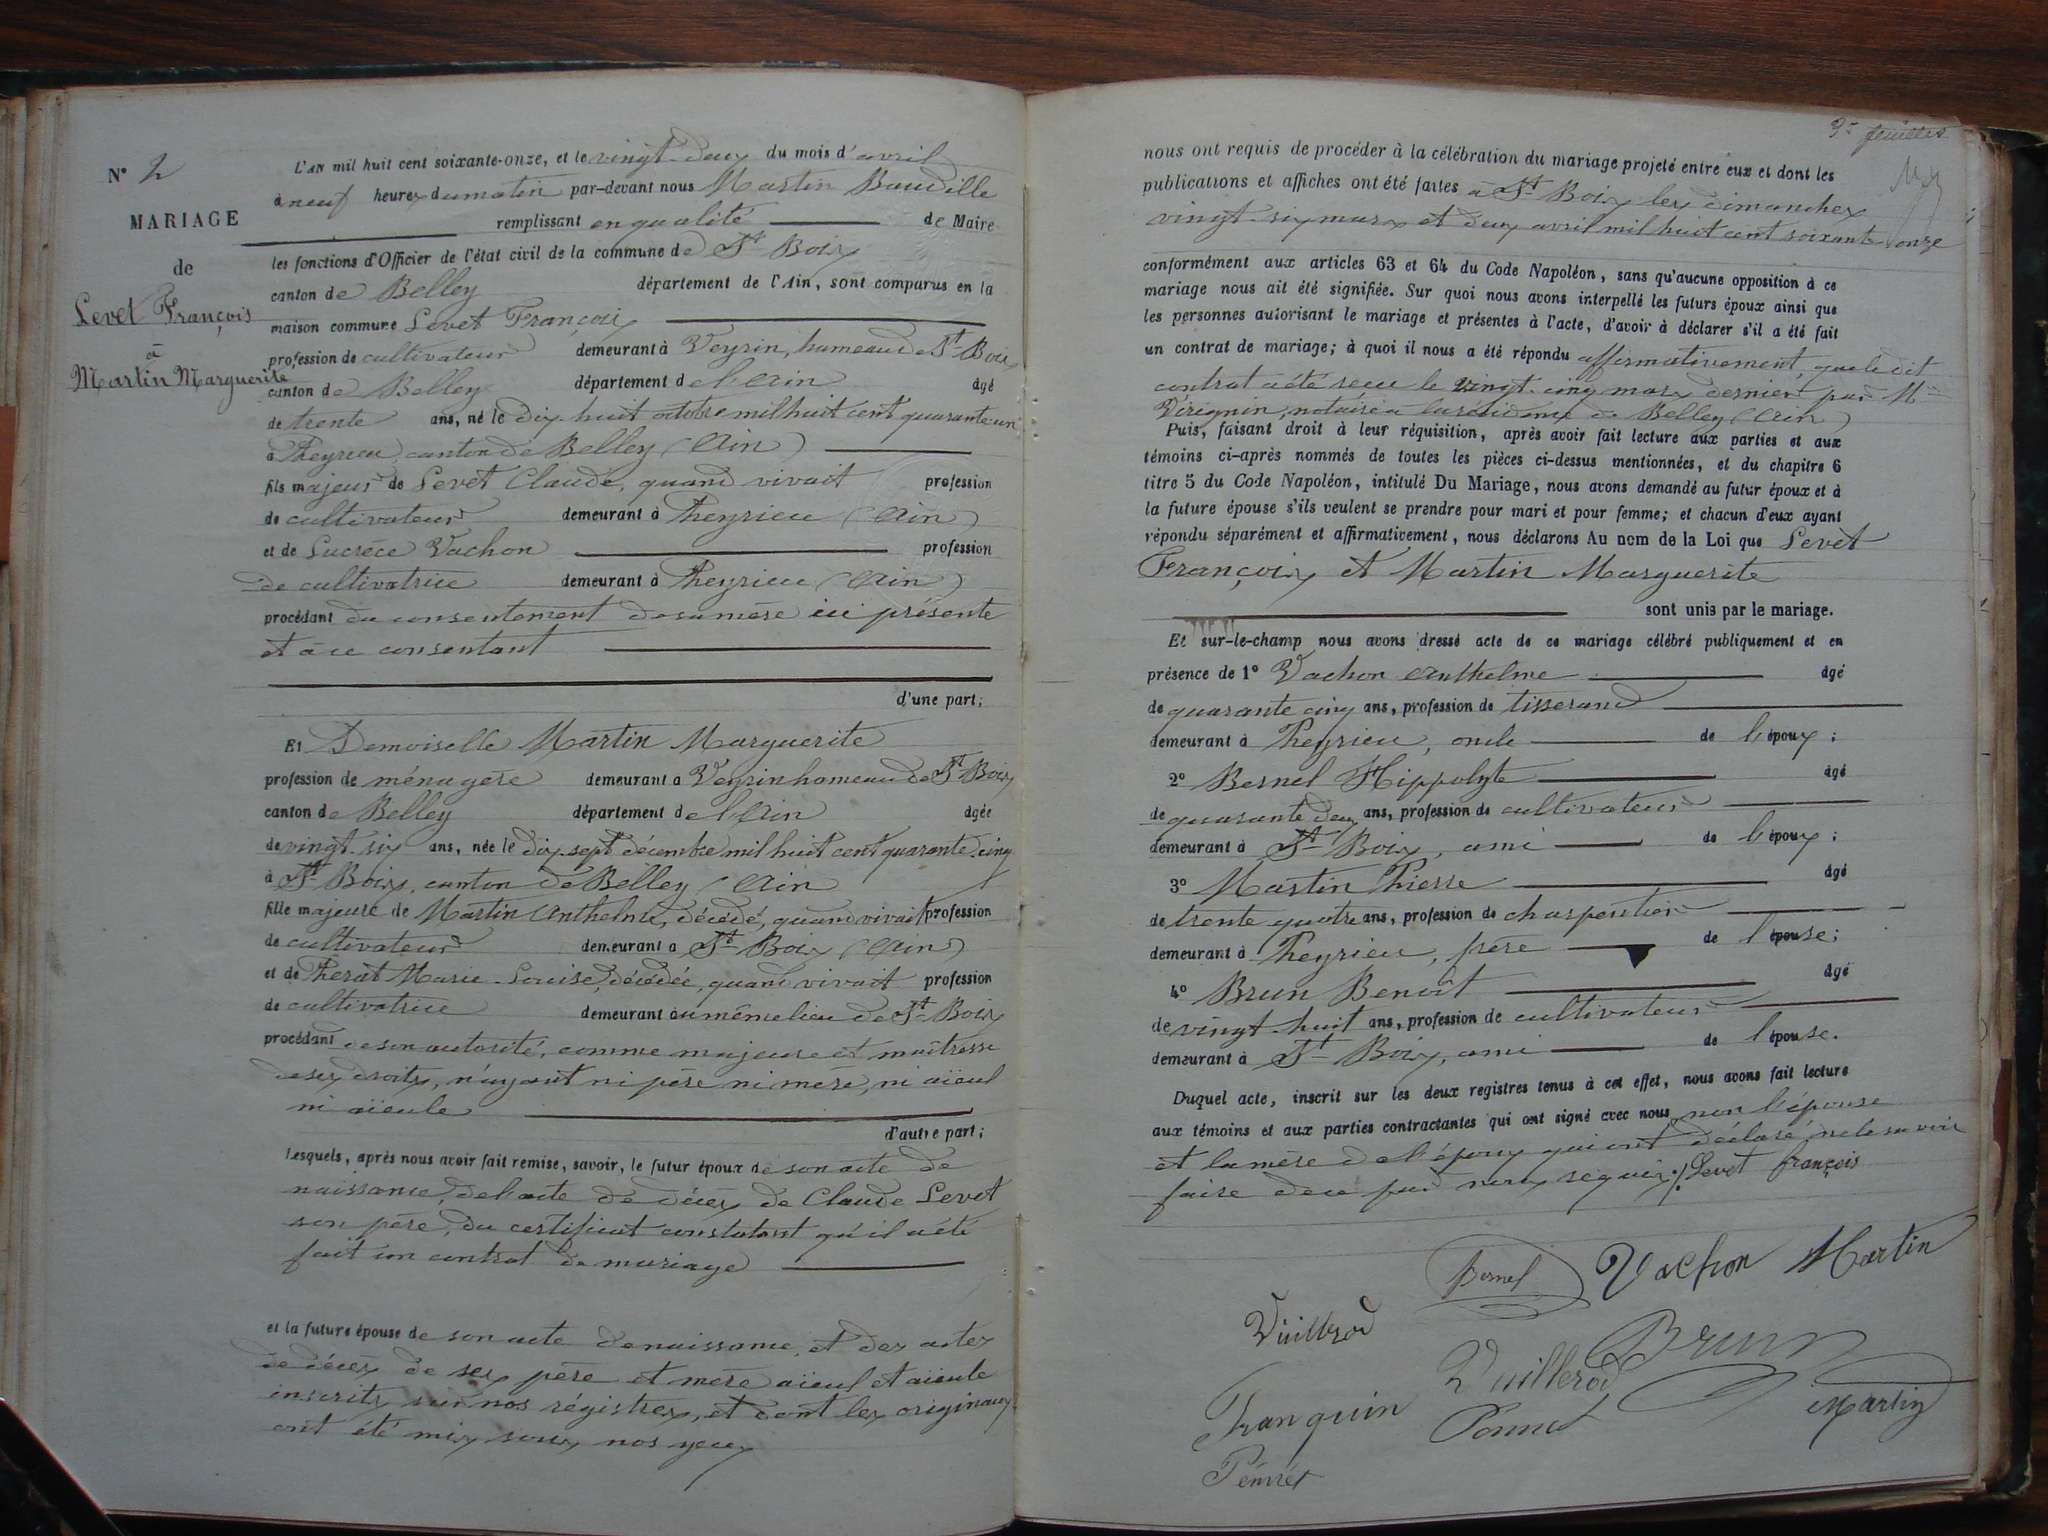 N° 2
MARIAGE
de
Levet François
à
Martin Marguerite
L'AN mil huit cent soixante-onze, et le vingt deux du mois d'avril
à neuf heures du matin par-devant nous Martin Baudille
remplissant en qualité de Maire
les fonctions d'Officier de l'état civil de la commune de St Bois
canton de Belley département de l'Ain, sont comparus en la
maison commune Levet François
profession de cultivateur demeurant à Veyrin, hameau de St Bois
canton de Belley département de l'Ain âgé
de trente ans, né le dix huit octobre mil huit cent quarante un
à Peyrieu canton de Belley (Ain)
fils majeur de Levet Claude, quand vivait profession
de cultivateur demeurant à Peyrieu (Ain)
et de Lucrèce Vachon profession
de cultivatrice demeurant à Peyrieu (Ain)
procédant du consentement de sa mère ici présente
et à ce consentant
d'une part;
Et Demoiselle Martin Marguerite
profession de ménagère demeurant à Veyrin hameau de St Bois
canton de Belley département de l'Ain âgée
de vingt six ans, née le dix sept décembre mil huit cent quarante cinq
à St Bois, canton de Belley (Ain
fille majeure de Martin Anthelme, décédé, quand vivait profession
de cultivateur demeurant à St Bois (Ain)
et de Pherat Marie Louise, décédée, quand vivait profession
de cultivatrice demeurant au même lieu de St Bois
procédant de son autorité, comme majeure et maîtresse
de ses droits, n'ayant ni père ni mère, ni aïeul
ni aïeule
d'autre part;
Lesquels, après nous avoir fait remise, savoir, le futur époux de son acte de
naissance, de l'acte de décès de Claude Levet
son père, du certificat constatant qu'il a été
fait un contrat de mariage
et la future épouse de son acte de naissance, et des actes
de décès de ses père et mère aïeul et aïeule
inscrits sur nos régistres, et dont les originaux
ont été mis sous nos yeux
nous ont requis de procéder à la célébration du mariage projeté entre eux et dont les
publications et affiches ont été faites à St Bois les dimanches
vingt six mars et deux avril mil huit cent soixante onze
conformément aux articles 63 et 64 du Code Napoléon, sans qu'aucune opposition à ce
mariage nous ait été signifiée. Sur quoi nous avons interpellé les futurs époux ainsi que
les personnes autorisant le mariage et présentes à l'acte, d'avoir à déclarer s'il a été fait
un contrat de mariage; à quoi il nous a été répondu affirmativement, que le dit
contrat a été reçu le vingt cinq mars dernier par Me
Vérignin, notaire à la résidence de Belley (Ain)
Puis, faisant droit à leur réquisition, après avoir fait lecture aux parties et aux
témoins ci-après nommés de toutes les pièces ci-dessus mentionnées, et du chapitre 6
titre 5 du Code Napoléon, intitulé Du Mariage, nous avons demandé au futur époux et à
la future épouse s'ils veulent se prendre pour mari et pour femme; et chacun d'eux ayant
répondu séparément et affirmativement, nous déclarons Au nom de la Loi que Levet
François et Martin Marguerite
sont unis par le mariage.
Et sur-le-champ nous avons dressé acte de ce mariage célébré publiquement et en
présence de 1° Vachon Anthelme âgé
de quarante cinq ans, profession de tisserand
demeurant à Peyrieu, oncle de l'époux;
2° Bernel Hippolyte âgé
de quarante deux ans, profession de cultivateur
demeurant à St Bois, ami de l'époux;
3° Martin Pierre âgé
de trente quatre ans, profession de charpentier
demeurant à Peyrieu, frère de l'épouse;
4° Brun Benoît âgé
de vingt huit ans, profession de cultivateur
demeurant à St Bois, ami de l'épouse.
Duquel acte, inscrit sur les deux registres tenus à cet effet, nous avons fait lecture
aux témoins et aux parties contractantes qui ont signé avec nous, non l'épouse
et la mère de l'époux qui ont déclaré ne le savoir
faire de ce par nous requis. Levet françois
Bernel Vachon Martin
Vuillerod Brun
Vuillerod
Martin
Tranquin Ponnet